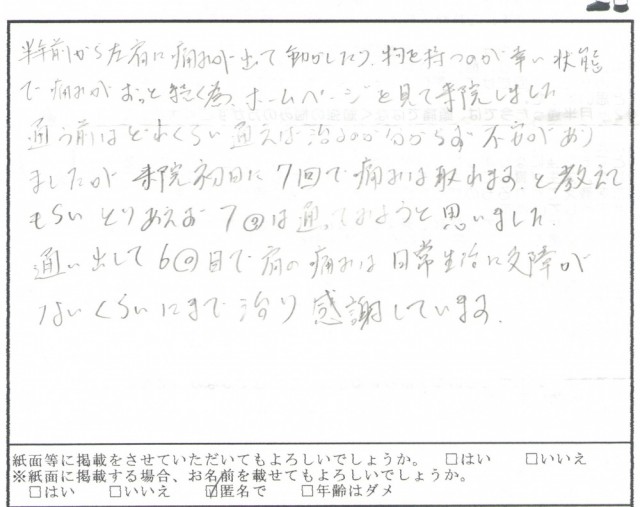 半年前から左肩に痛みが出て動かしたり、物を持つのが辛い状態
で痛みがずっと続く為、ホームページを見て来院しました
通う前はどれくらい通えば治るのか分からず不安があり
ましたが来院初日に7回で痛みは取れます。と教えて
もらいとりあえず7回は通ってみようと思いました。
通い出して6回目で肩の痛みは日常生活に支障が
ないくらいにまで治り感謝しています。
紙面等に掲載をさせていただいてもよろしいでしょうか。 □はい □いいえ
※紙面に掲載する場合、お名前を載せてもよろしいでしょうか。
□はい □いいえ ☑匿名で □年齢はダメ